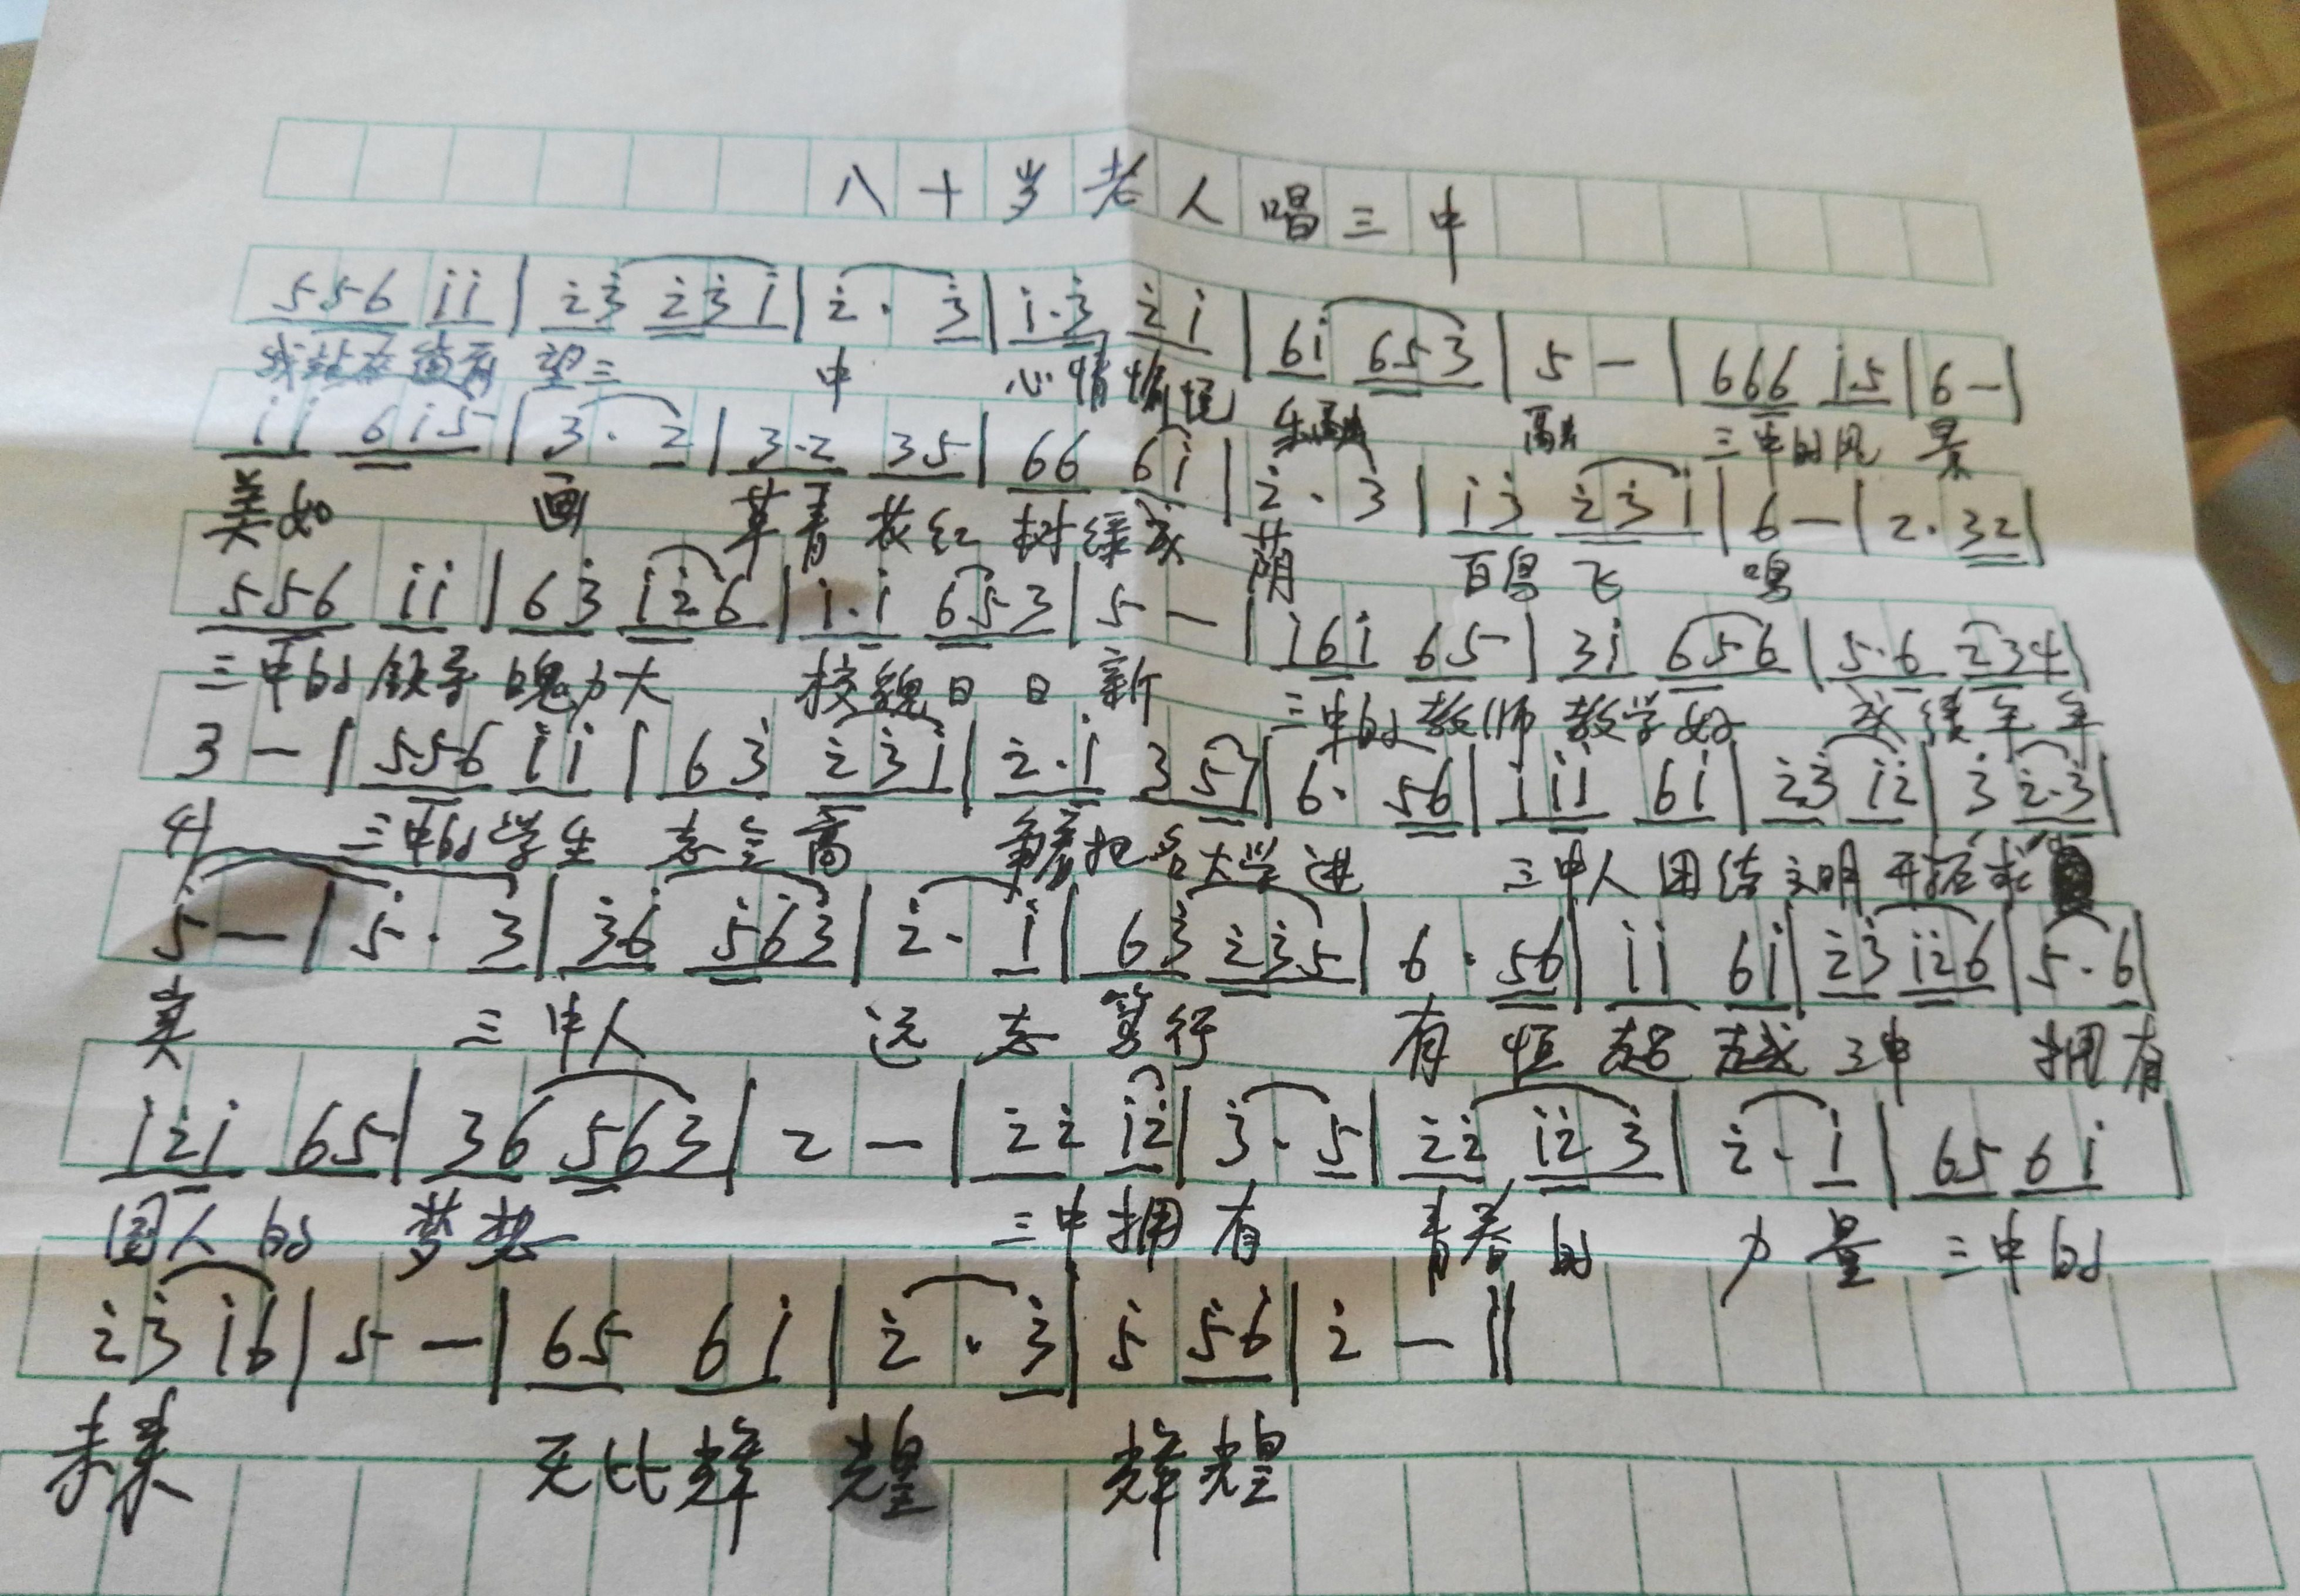 八十岁老人唱三中
556 i̇i̇ | 2̇3̇ 2̇3̇i̇ | 2̇· 3̇ | i̇·3̇ 2̇i̇ | 6i̇ 653 | 5 — | 666 i̇5 | 6 — |
我站在 望三 中 心情愉悦 乐融融 融融 三中的风 景
i̇i̇ 6i̇5 | 3· 2 | 3·2 35 | 66 6i̇ | 2̇· 3 | i̇3̇ 2̇3̇i̇ | 6 — | 2·32 |
美如 画 草青花红 树绿成 荫 百鸟飞 鸣
556 i̇i̇ | 63̇ i̇2̇6 | i̇·i̇ 653 | 5 — | i̇6i̇ 65 | 3i̇ 656 | 5·6 234 |
三中的领导 魄力大 校貌日日新 三中的教师 教学好 成绩年年
3 — | 556 i̇i̇ | 63̇ 2̇3̇i̇ | 2̇·i̇ 357 | 6· 56 | i̇i̇i̇ 6i̇ | 2̇3̇ i̇2̇ | 3̇ 2̇·3̇ |
升 三中的学生 志 高 大学进 三中人团结文明 开拓求
5̇ — | 5̇· 3̇ | 3̇6̇ 5̇6̇3̇ | 2̇· i̇ | 63̇ 2̇3̇5 | 6· 56 | i̇i̇ 6i̇ | 2̇3̇ i̇2̇6 | 5· 6 |
实 三中人 远志 笃行 有恒超越 三中 拥有
i̇2̇i̇ 65 | 36 563 | 2 — | 2̇2̇ i̇2̇ | 3̇· 5 | 2̇2̇ i̇2̇3̇ | 2̇· i̇ | 65 6i̇ |
国人的 梦想 三中拥有 青春的 力量 三中的
2̇3̇ i̇6 | 5 — | 65 6i̇ | 2̇· 3̇ | 5̇ 5̇6̇ | 2̇ — ‖
未来 无比辉煌 辉煌